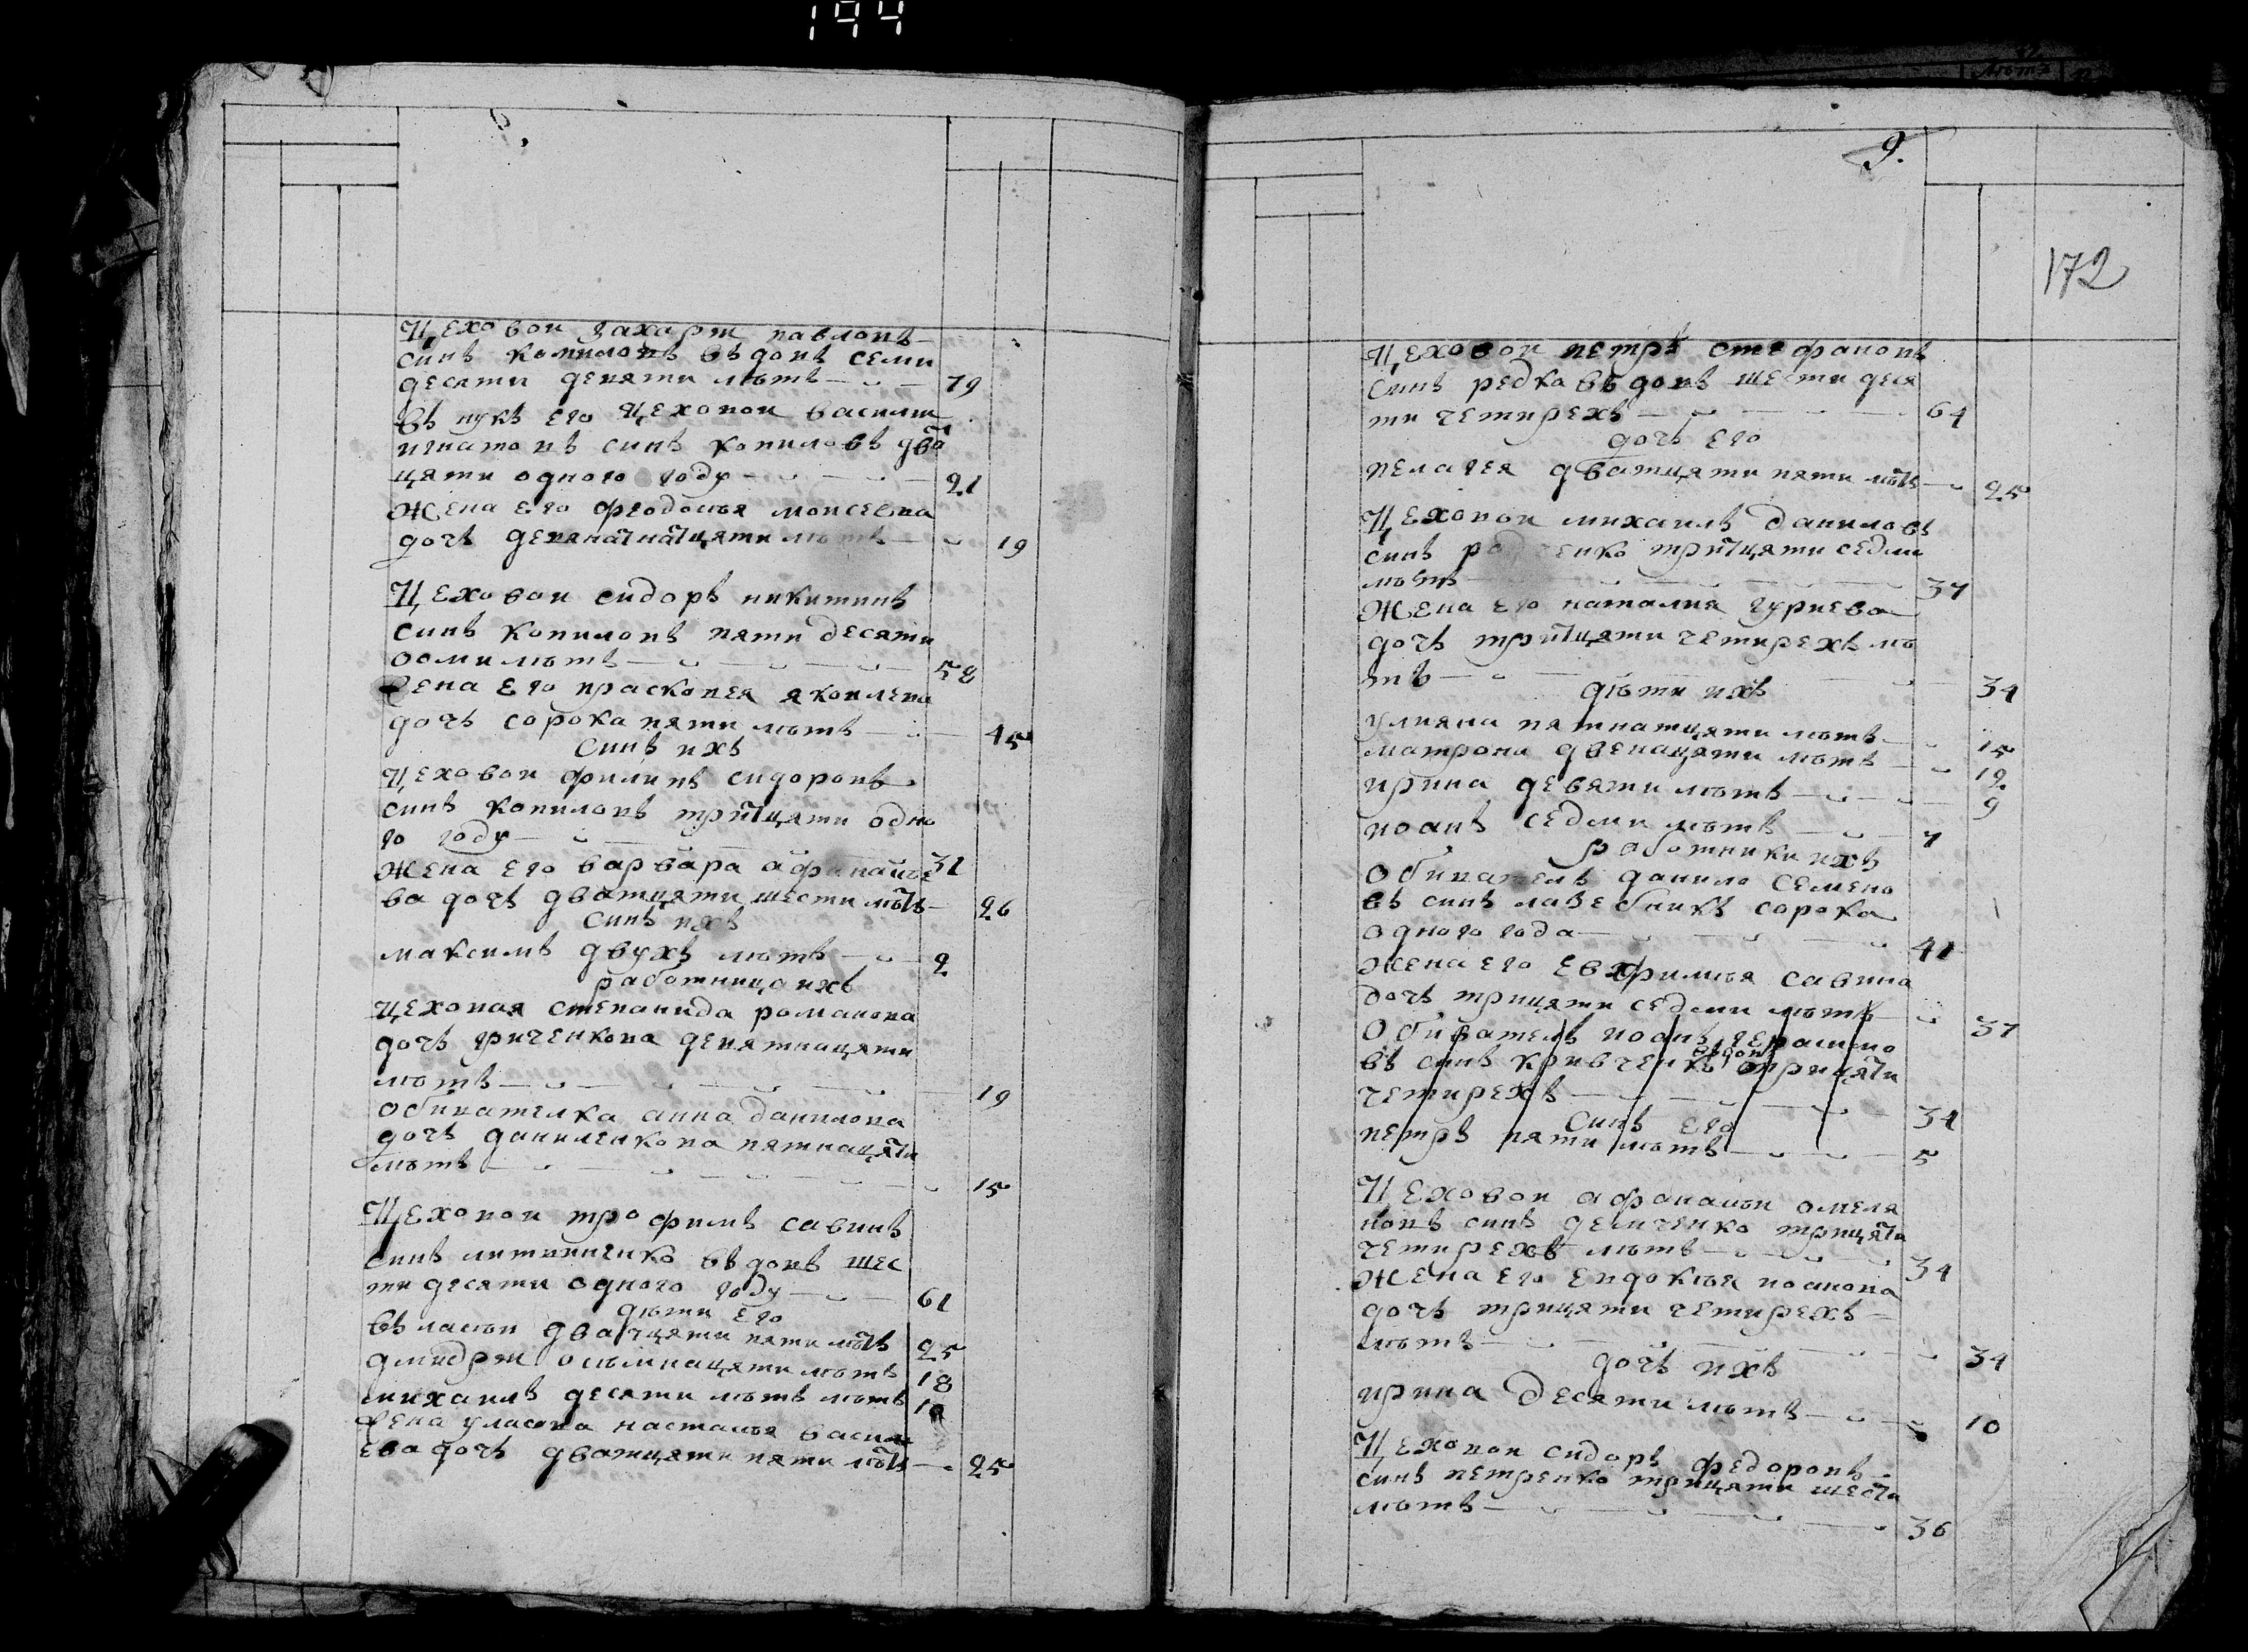 144
Цеховои захарти павловъ
синъ копиловъ въдовъ семи
десяти девяти лѣтъ 79
Внукъ его цеховои василии
игнатовъ синъ копиловъ два
цяти одного году 21
Жена его феодосия моисеева
дочъ девянатнатцяти лѣтъ 19
Цеховои сидоръ никитинъ
синъ копиловъ пяти десяти
осми лѣтъ 58
Жена его прасковея яковлева
дочъ сорока пяти лѣтъ 45
синъ ихъ
Цеховои филипъ сидоровъ
синъ копиловъ тритцяти одно
го году 31
Жена его варвара афанасие
ва дочъ дватцяти шести лѣтъ 26
синъ ихъ
максимъ двухъ лѣтъ 2
работница ихъ
цеховая степанида романова
дочъ гриченкова девятнацяти
лѣтъ 19
обивателка анна данилова
дочъ даниленкова пятнацяти
лѣтъ 15
Цеховои трофимъ савинъ
синъ литвиненко вдовъ шес
ти десяти одного году 61
дѣти его
власии дватцяти пяти лѣтъ 25
дмидрии осмьнацяти лѣтъ 18
михаилъ десяти лѣтъ лѣтъ 10
Жена уласова настасия васил
ева дочъ дватцяти пяти лѣтъ 25
9.
172
Цеховои петръ стефановъ
синъ редка въдовъ шести деся
ти четирехъ 64
дочъ его
пелагея дватцяти пяти лѣтъ 25
Цеховои михаилъ даниловъ
синъ тритцяти седми
лѣтъ 37
Жена его наталия гуриева
дочъ тритцяти четирехъ лѣ
тъ 34
дѣти ихъ
улияна пятнатцяти лѣтъ 15
матрона двенацяти лѣтъ 12
ирина девяти лѣтъ 9
иоанъ седми лѣтъ 7
работники ихъ
Обиватель данило семено
въ синъ лазебникъ сорока
одного года 41
жена его евфримия савина
дочъ трицяти седми лѣтъ 37
Обиватель иоанъ герасимо
въ синъ кривченко вдовъ трицяти
четирехъ 34
синъ его
петръ пяти лѣтъ 5
Цеховои афанасии омеля
новъ синъ демченко трицяти
четирехъ лѣтъ 34
Жена его евдокия иоанова
дочъ трицяти четирехъ
лѣтъ 34
дочъ ихъ
ирина десяти лѣтъ 10
Цеховои сидоръ федоровъ
синъ петренко трицяти шести
лѣтъ 36